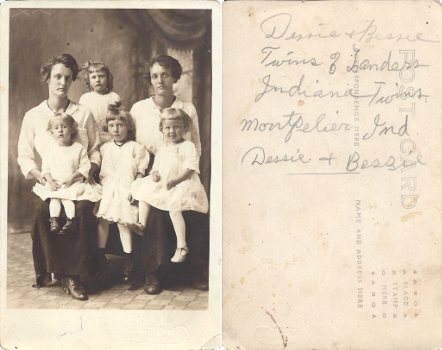 Dessie & Bessie
Twins of Landers
Indiana Twins
Montpelier, Ind
Dessie & Bessie
POST CARD
CORRESPONDENCE HERE
NAME AND ADDRESS HERE
PLACE
STAMP
HERE